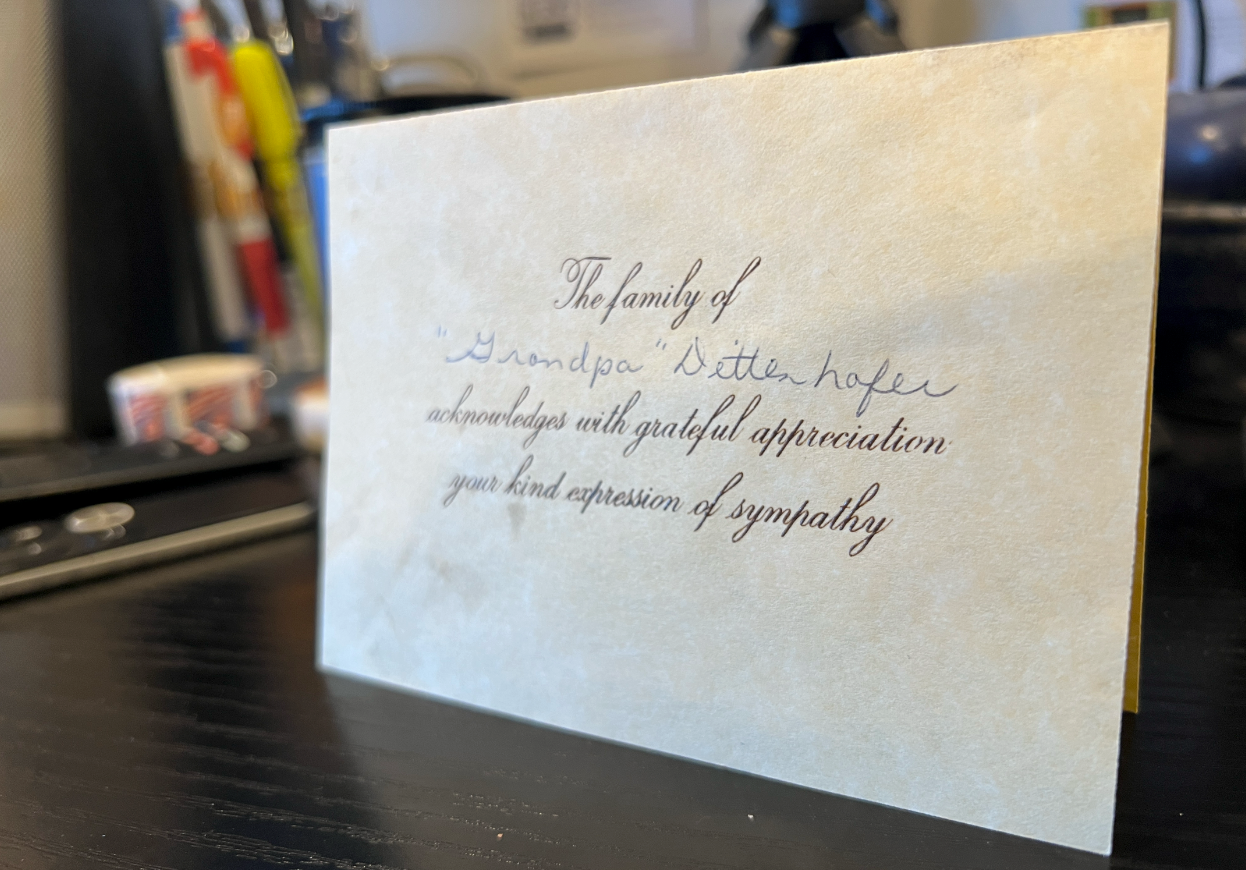 The family of
"Grandpa" Dittenhafer
acknowledges with grateful appreciation
your kind expression of sympathy